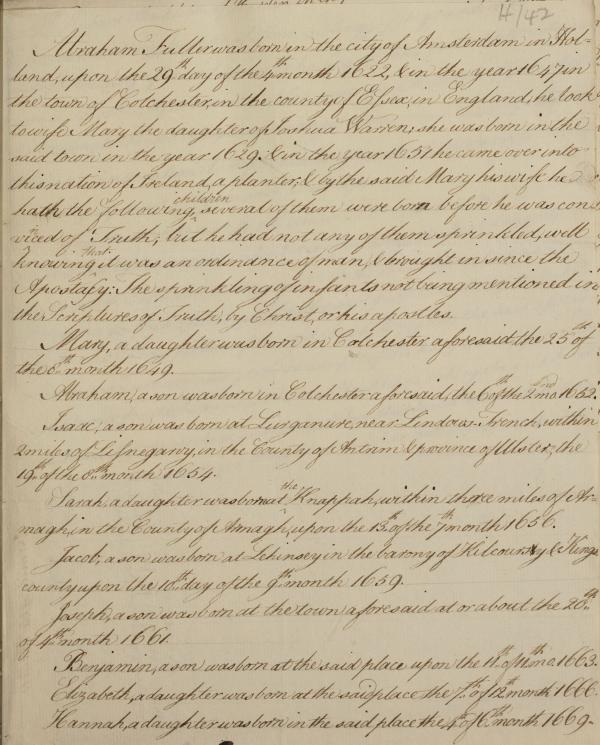 H/42
Abraham Fuller was born in the city of Amsterdam in Hol-
land, upon the 29th day of the 4th month 1622, & in the year 1647 in
the town of Colchester, in the county of Essex, in England, he took
to wife Mary the daughter of Joshua Warren; she was born in the
said town in the year 1629: & in the year 1651 he came over into
this nation of Ireland, a planter, & by the said Mary his wife he
hath the following children, several of them were born before he was con
vinced of Truth; but he had not any of them sprinkled, well
knowing that it was an ordinance of man, & brought in since the
Apostacy: The sprinkling of infants not being mentioned in
the Scriptures of Truth, by Christ, or his apostles.
Mary, a daughter was born in Colchester aforesaid the 25th of
the 8th month 1649.
Abraham, a son was born in Colchester aforesaid, the 6th of the 2nd mo. 1652.
Isaac, a son was born at Lurganure, near Trench, within
2 miles of Lisnegarvy, in the County of Antrim & province of Ulster, the
19th of the 8th month 1654.
Sarah, a daughter was born at the Knappah, within three miles of Ar-
magh, in the County of Armagh, upon the 13th of the 7th month 1656.
Jacob, a son was born at Lehinsey in the barony of Kilcoursy & Kings
county upon the 10th day of the 9th month 1659.
Joseph, a son was born at the town aforesaid at or about the 20th
of 4th month 1661.
Benjamin, a son was born at the said place upon the 11th of 11th mo. 1663.
Elizabeth, a daughter was born at the said place the 7th of 12th month 1666.
Hannah, a daughter was born in the said place the 4th of 6th month 1669.